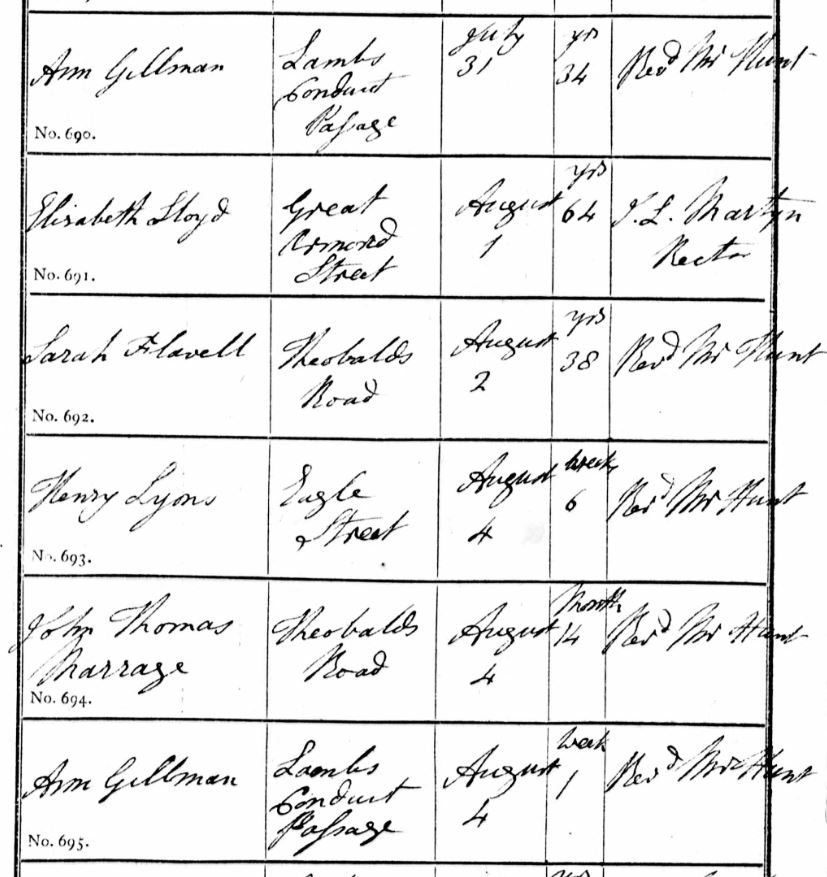 Ann Gillman
Lambs
Conduit
Passage
July
31
yrs
34
Revd Mr Hunt
No. 690.
Elisabeth Lloyd
Great
Ormond
Street
August
1
yrs
64
J. L. Martyn
Rector
No. 691.
Sarah Flavell
Theobalds
Road
August
2
yrs
38
Revd Mr Hunt
No. 692.
Henry Lyons
Eagle
Street
August
4
weeks
6
Revd Mr Hunt
No. 693.
John Thomas
Marrage
Theobalds
Road
August
4
Months
14
Revd Mr Hunt
No. 694.
Ann Gillman
Lambs
Conduit
Passage
August
4
Week
1
Revd Mr Hunt
No. 695.